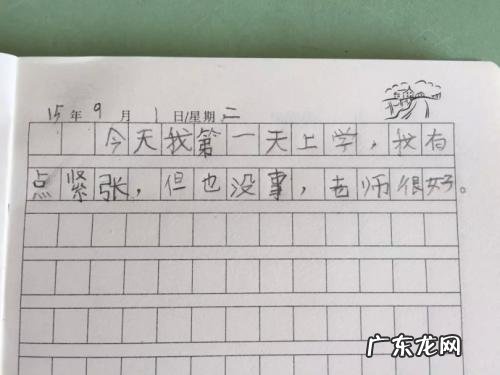 15年9月1日/星期二
今天我第一天上学，我有
点紧张，但也没事，老师很好。
广东龙网